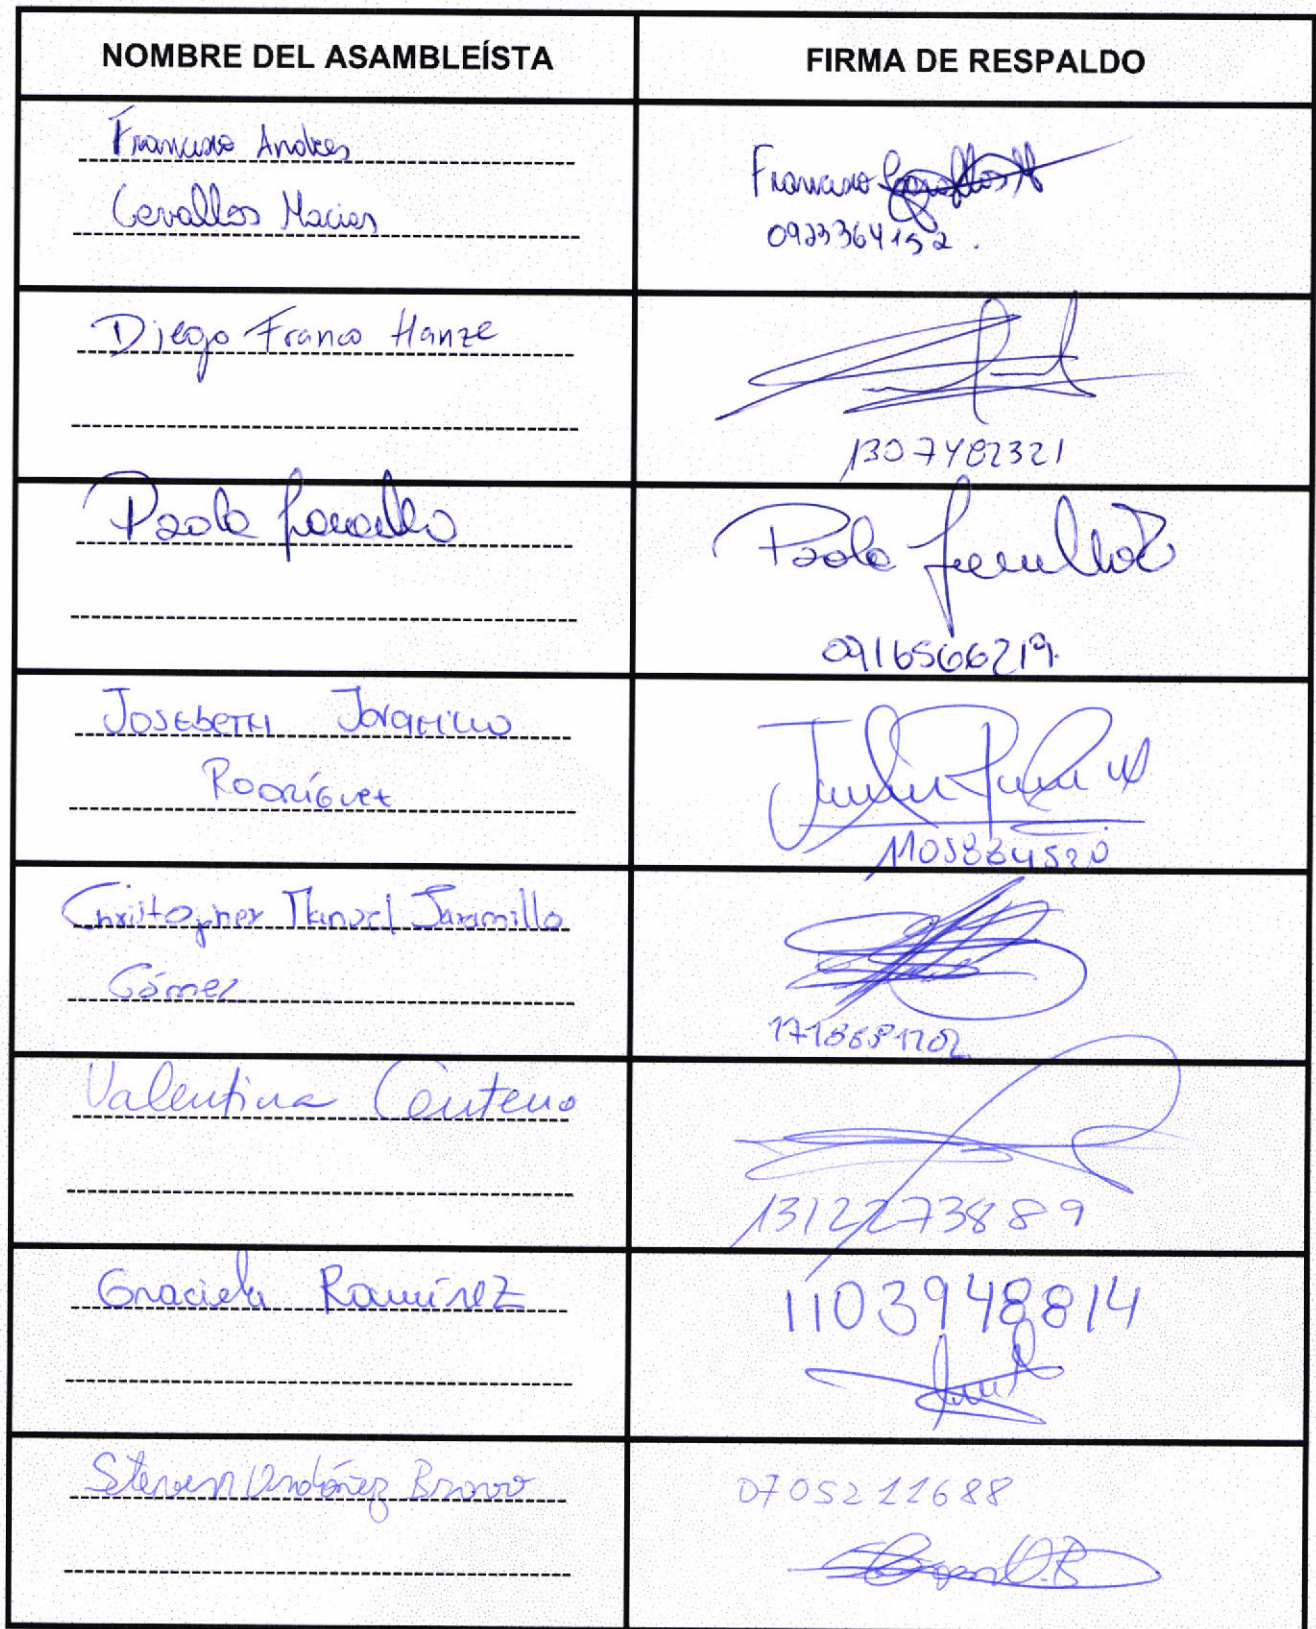 NOMBRE DEL ASAMBLEÍSTA
FIRMA DE RESPALDO
Francisco Andres
Cevallos Macías
Francisco Cevallos M
0923364152.
Diego Franco Hanze
1307482321
Paola Jaramillo
Paola Jaramillo Z
0916566219.
JOSEBETH Jaramillo
Rodríguez
Christopher Manuel Jaramillo
Gómez
Valentina Centeno
1312273889
Graciela Ramírez
1103948814
Steven Ordóñez Bravo
0705211688